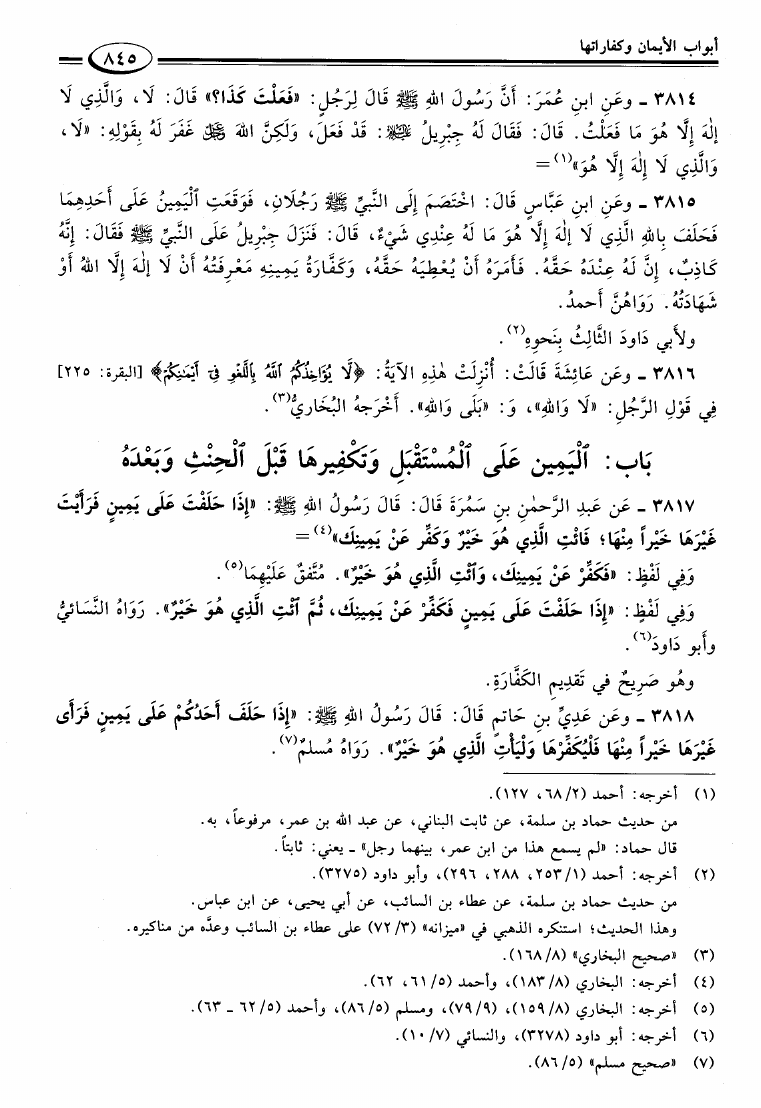 أبواب الأيمان وكفاراتها
٨٤٥
٣٨١٤ ـ وعَنِ ابنِ عُمَرَ: أَنَّ رَسُولَ اللهِ ﷺ قَالَ لِرَجُلٍ: «فَعَلْتَ كَذَا؟» قَالَ: لَا، وَالَّذِي لَا
إِلٰهَ إِلَّا هُوَ مَا فَعَلْتُ. قَالَ: فَقَالَ لَهُ جِبْرِيلُ ﷺ: قَدْ فَعَلَ، وَلَكِنَّ اللهَ ﷻ غَفَرَ لَهُ بِقَوْلِهِ: «لَا،
وَالَّذِي لَا إِلٰهَ إِلَّا هُوَ»(١) =
٣٨١٥ ـ وعَنِ ابنِ عَبَّاسٍ قَالَ: اخْتَصَمَ إِلَى النَّبِيِّ ﷺ رَجُلَانِ، فَوَقَعَتِ ٱلْيَمِينُ عَلَى أَحَدِهِمَا
فَحَلَفَ بِاللهِ الَّذِي لَا إِلٰهَ إِلَّا هُوَ مَا لَهُ عِنْدِي شَيْءٌ، قَالَ: فَنَزَلَ جِبْرِيلُ عَلَى النَّبِيِّ ﷺ فَقَالَ: إِنَّهُ
كَاذِبٌ، إِنَّ لَهُ عِنْدَهُ حَقَّهُ. فَأَمَرَهُ أَنْ يُعْطِيَهُ حَقَّهُ، وَكَفَّارَةُ يَمِينِهِ مَعْرِفَتُهُ أَنْ لَا إِلٰهَ إِلَّا اللهُ أَوْ
شَهَادَتُهُ. رَوَاهُنَّ أَحمدُ.
ولأبي دَاودَ الثَّالِثُ بِنَحوِهِ(٢).
٣٨١٦ ـ وعَن عَائِشَةَ قَالَتْ: أُنْزِلَتْ هٰذِهِ الآيَةُ: ﴿لَّا يُؤَاخِذُكُمُ ٱللَّهُ بِٱللَّغْوِ فِيٓ أَيْمَٰنِكُمْ﴾ [البقرة: ٢٢٥]
فِي قَوْلِ الرَّجُلِ: «لَا وَاللهِ»، وَ: «بَلَى وَاللهِ». أَخْرَجهُ البُخَارِيُّ(٣).
بَاب: ٱلْيَمِين عَلَى ٱلْمُسْتَقْبَلِ وَتَكْفِيرهَا قَبْلَ ٱلْحِنْثِ وَبَعْدَهُ
٣٨١٧ ـ عَن عَبدِ الرَّحمٰنِ بنِ سَمُرَةَ قَالَ: قَالَ رَسُولُ اللهِ ﷺ: «إِذَا حَلَفْتَ عَلَى يَمِينٍ فَرَأَيْتَ
غَيْرَهَا خَيْراً مِنْهَا؛ فَائْتِ الَّذِي هُوَ خَيْرٌ وَكَفِّر عَنْ يَمِينِكَ»(٤) =
وَفِي لَفْظٍ: «فَكَفِّرْ عَنْ يَمِينِكَ، وَٱئْتِ الَّذِي هُوَ خَيْرٌ». مُتَّفقٌ عَلَيْهِمَا(٥).
وَفِي لَفْظٍ: «إِذَا حَلَفْتَ عَلَى يَمِينٍ فَكَفِّرْ عَنْ يَمِينِكَ، ثُمَّ ٱئْتِ الَّذِي هُوَ خَيْرٌ». رَوَاهُ النَّسَائيُّ
وأبو دَاودَ(٦).
وهُو صَرِيحٌ في تَقدِيمِ الكَفَّارَةِ.
٣٨١٨ ـ وعَن عَدِيِّ بنِ حَاتمٍ قَالَ: قَالَ رَسُولُ اللهِ ﷺ: «إِذَا حَلَفَ أَحَدُكُمْ عَلَى يَمِينٍ فَرَأَى
غَيْرَهَا خَيْراً مِنْهَا فَلْيُكَفِّرْهَا وَلْيَأْتِ الَّذِي هُوَ خَيْرٌ». رَوَاهُ مُسلمٌ(٧).
(١) أخرجه: أحمد (٢/ ٦٨، ١٢٧).
من حديث حماد بن سلمة، عن ثابت البناني، عن عبد الله بن عمر، مرفوعاً، به.
قال حماد: «لم يسمع هذا من ابن عمر، بينهما رجل» ـ يعني: ثابتاً.
(٢) أخرجه: أحمد (١/ ٢٥٣، ٢٨٨، ٢٩٦)، وأبو داود (٣٢٧٥).
من حديث حماد بن سلمة، عن عطاء بن السائب، عن أبي يحيى، عن ابن عباس.
وهذا الحديث؛ استنكره الذهبي في «ميزانه» (٣/ ٧٢) على عطاء بن السائب وعدَّه من مناكيره.
(٣) «صحيح البخاري» (٨/ ١٦٨).
(٤) أخرجه: البخاري (٨/ ١٨٣)، وأحمد (٥/ ٦١، ٦٢).
(٥) أخرجه: البخاري (٨/ ١٥٩)، (٩/ ٧٩)، ومسلم (٥/ ٨٦)، وأحمد (٥/ ٦٢ ـ ٦٣).
(٦) أخرجه: أبو داود (٣٢٧٨)، والنسائي (٧/ ١٠).
(٧) «صحيح مسلم» (٥/ ٨٦).